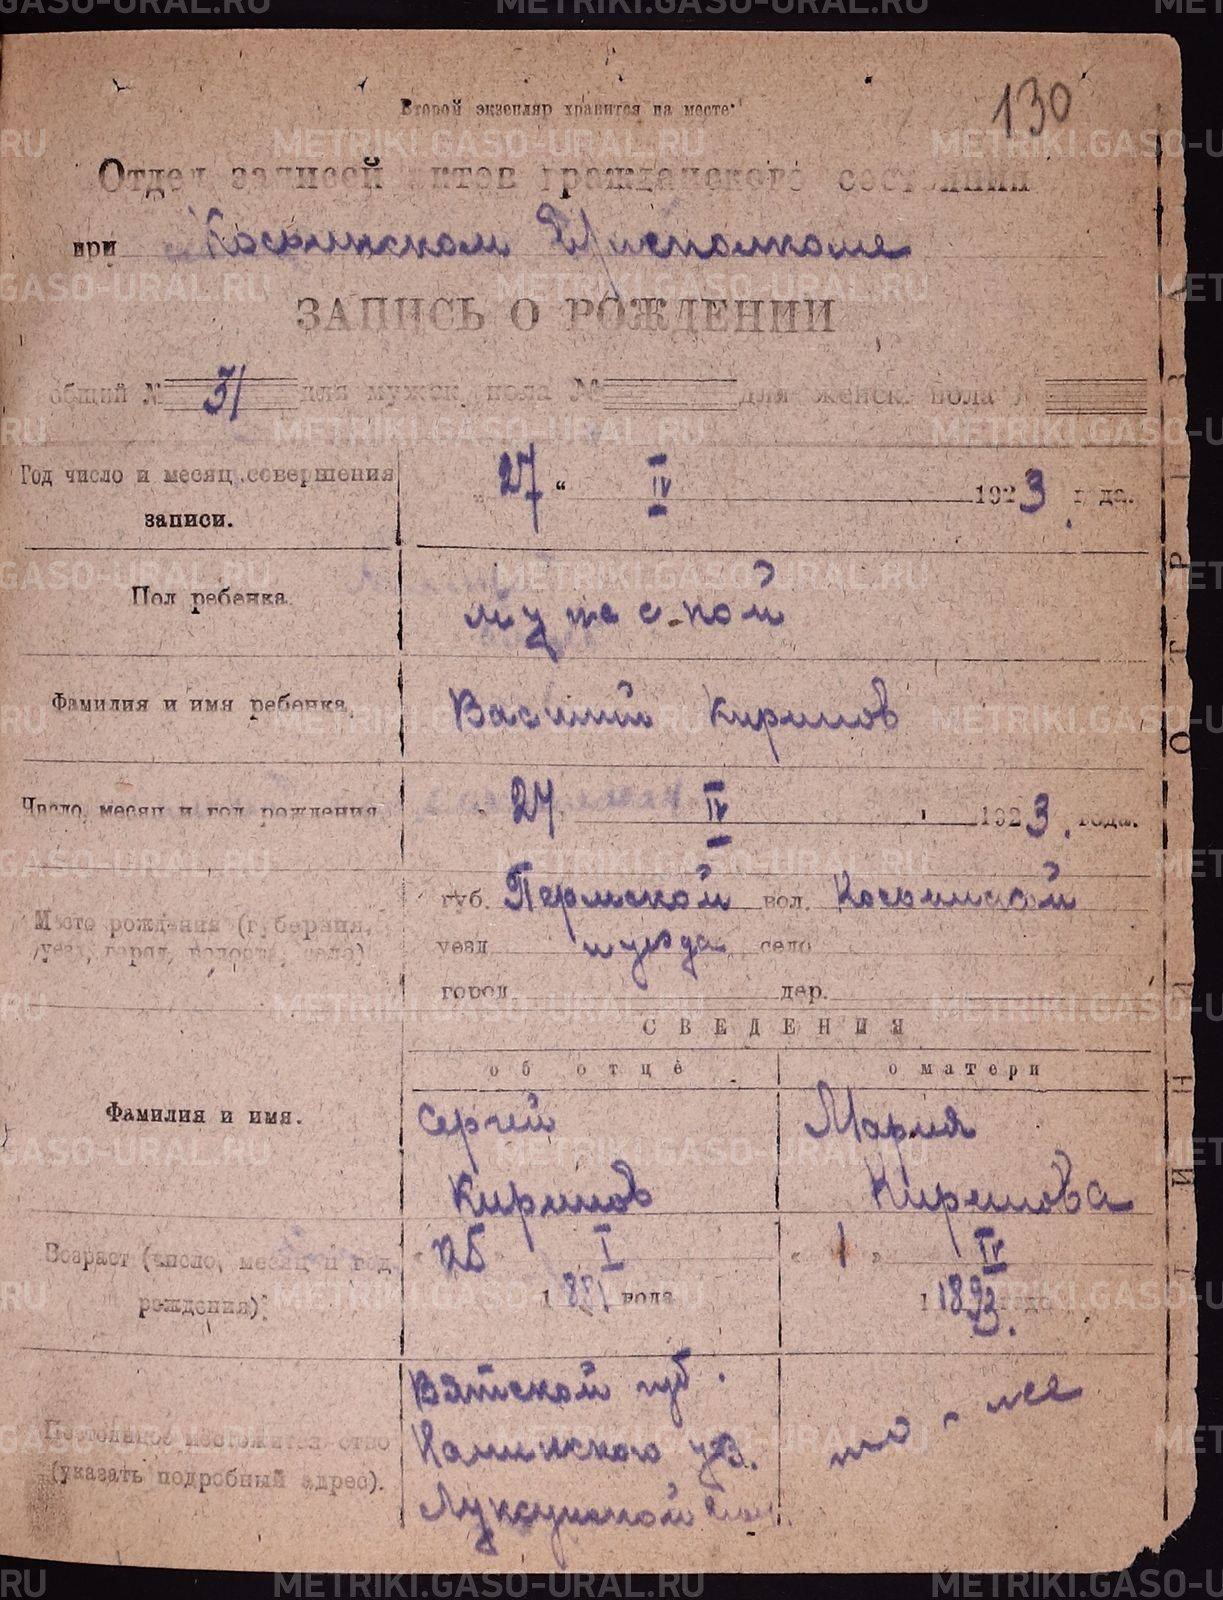 130
Второй экземпляр хранится на месте
Отдел записей актов гражданского состояния
при Косьинском В/исполкоме
ЗАПИСЬ О РОЖДЕНИИ
общий № 31 для мужск. пола № для женск. пола №
Год число и месяц совершения записи. „27“ IV 1923 года.
Пол ребенка мужской
Фамилия и имя ребенка Василий
Число, месяц и год рождения 27 IV 1923 года.
Место рождения (губерния, уезд, город, волость, село)
губ. Пермской вол. Косьинской
уезд и уезда село
город дер.
СВЕДЕНИЯ
об отце о матери
Фамилия и имя.
Сергей Мария
Возраст (число, месяц и год рождения)
25 I „1“ IV
1881 года 1893 года
Постоянное местожительство (указать подробный адрес).
Вятской губ. то-же
уез.
ЛИНИЯ ОТРЕЗА
METRIKI.GASO-URAL.RU